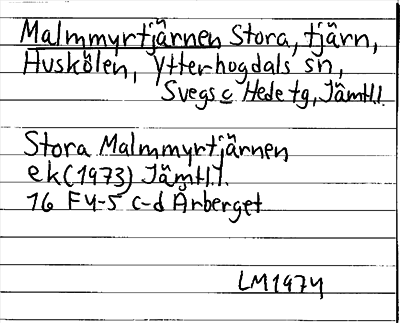 Malmmyrtjärnen Stora, tjärn,
Huskölen, Ytterhogdals sn,
Svegs o Hede tg, Jämtl.l.
Stora Malmmyrtjärnen
ek(1973) Jämtl.l.
16 F4-5 c-d Arberget
LM1974